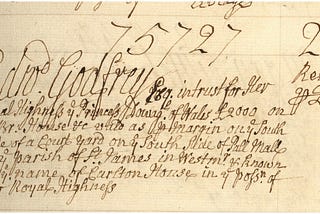 75727 2
Edwd. Godfrey Esq. in trust for Her
al Highness ye Princess Dowy. of Wales £2000 on
House &c. as margin on ye South
e of a Court yard on ye South side of Pall Mall
ye parish of St. James in Westmr. & known
y name of Carlton House in ye possn. of
r Royal Highness